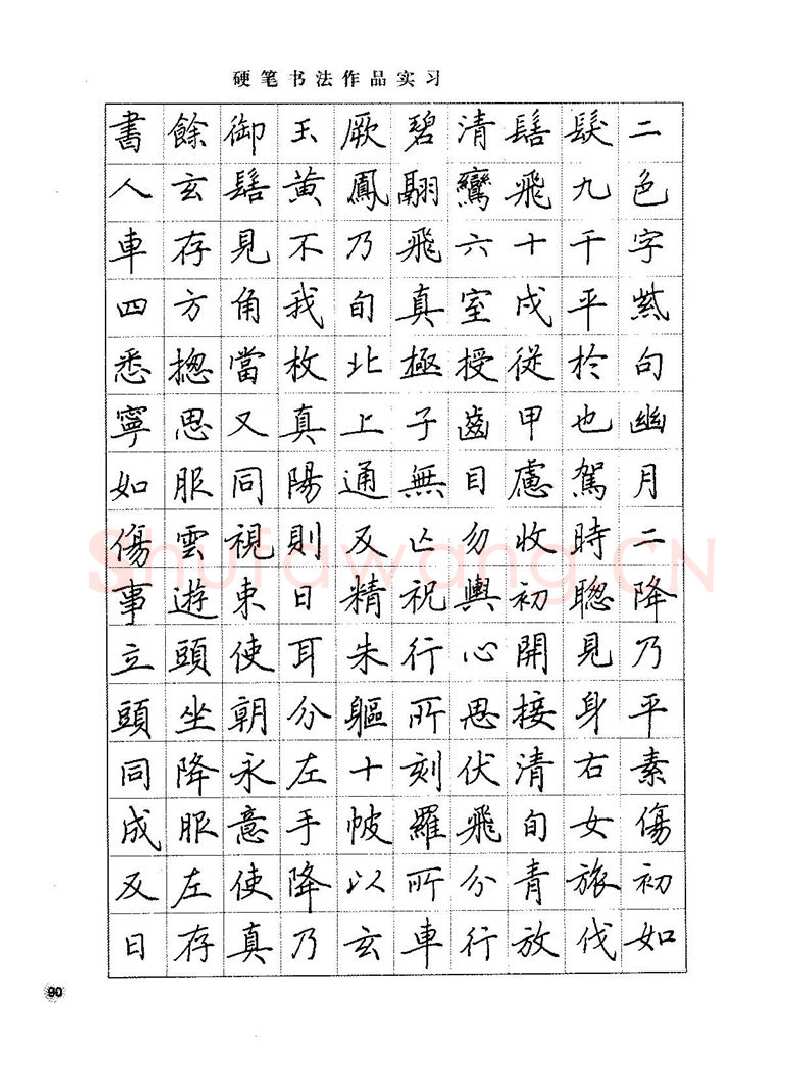 硬笔书法作品实习
二色字句幽月二降乃平素傷初如
髮九千平於也駕時聰見身右女旅伐
髻飛十戌從甲慮收初開接清旬青放
清鸞六室授齒目勿輿心思伏飛分行
碧翮飛真極子無亡祝行所刻羅所車
厥鳳乃旬北上通及精朱軀十帔以玄
玉黃不我枚真陽則日耳分左手降乃
御髻見角當又同視東使朝永意使真
餘玄存方揔思服雲遊頭坐降服左存
書人車四悉寧如傷事立頭同成及日
Shufawang.CN
90